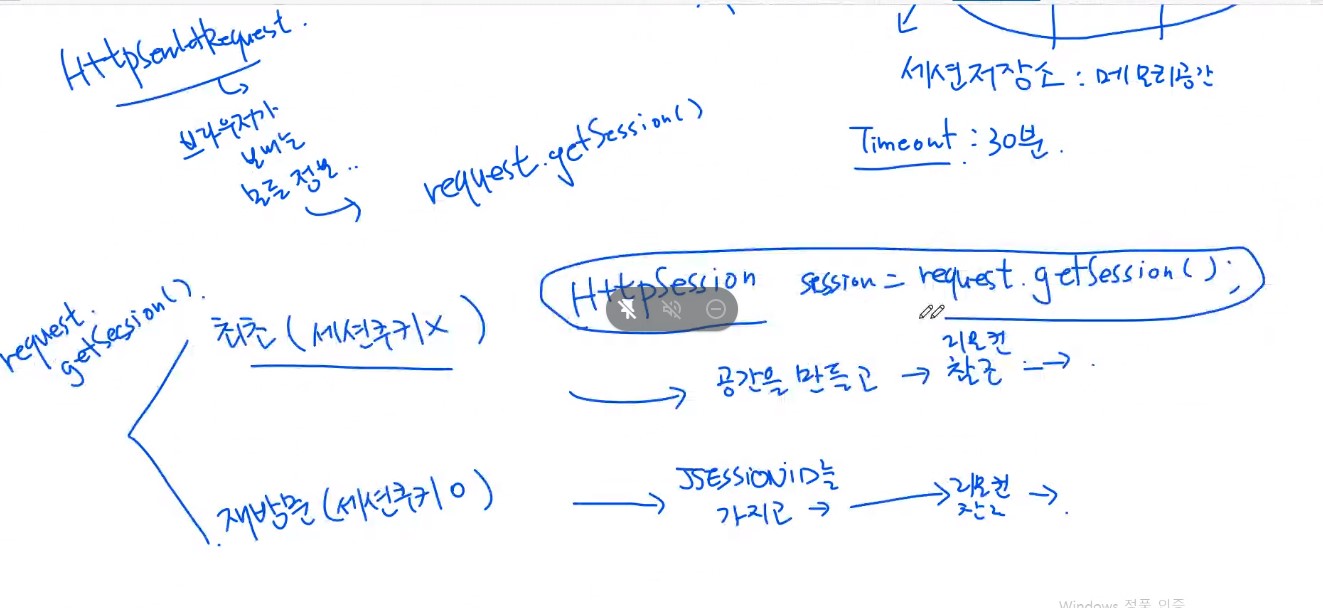 HttpServletRequest.
브라우저가
보내는
모든 정보..
request.getSession()
세션저장소 : 메모리공간
Timeout : 30분.
HttpSession session = request.getSession();
request.
getSession().
최초 (세션쿠키X)
공간을 만들고 →
→ .
재방문 (세션쿠키O)
JSESSIONID를
가지고 →
→ .
Windows 정품 인증